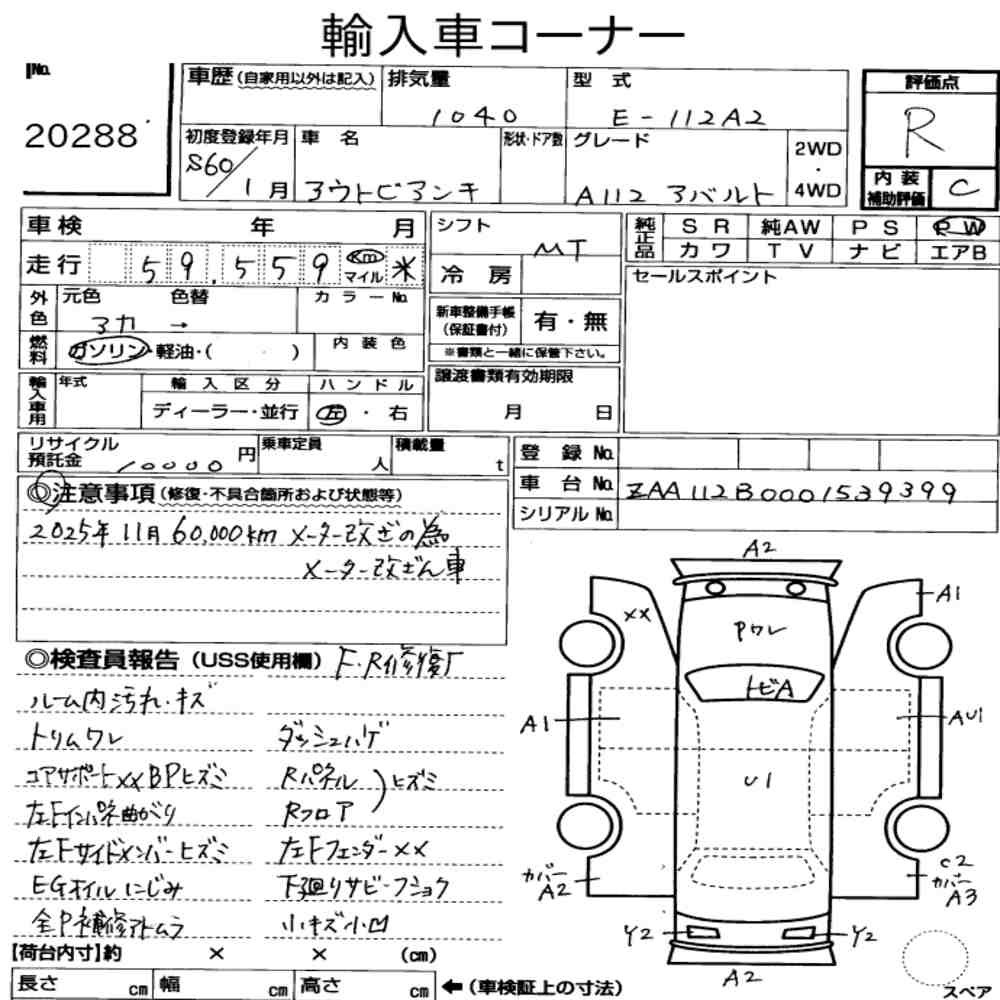 輸入車コーナー
No.
20288
車歴(自家用以外は記入)
排気量
1040
型式
E-112A2
評価点
R
初度登録年月
S60/1月
車名
アウトビアンキ
形状・ドア数
グレード
A112 アバルト
2WD
・
4WD
内装
補助評価
C
車検 年 月
走行 59,559 Km マイル ※
外色
元色 色替
アカ →
カラーNo.
燃料
ガソリン・軽油・( )
内装色
輸入車用
年式
輸入区分
ディーラー・並行
ハンドル
左・右
シフト
MT
冷房
新車整備手帳
(保証書付)
有・無
※書類と一緒に保管下さい。
譲渡書類有効期限
月 日
純正品
SR 純AW PS PW
カワ TV ナビ エアB
セールスポイント
リサイクル
預託金 10000 円
乗車定員
人
積載量
t
登録No.
車台No. ZAA112B0001539399
シリアルNo.
◎注意事項(修復・不具合箇所および状態等)
2025年11月 60,000km メーター改ざの為
メーター改ざん車
◎検査員報告(USS使用欄) F・R修復
ルーム内汚れ・キズ
トリムワレ ダッシュハゲ
コアサポートXX BPヒズミ Rパネル
左Fインパネ曲がり Rフロア
ヒズミ
左Fサイドメンバーヒズミ 左FフェンダーXX
EGオイルにじみ 下廻りサビ・フショク
全P補修アトムラ 小キズ小凹
【荷台内寸】約 × × (cm)
長さ cm 幅 cm 高さ cm ←(車検証上の寸法)
A2
XX
A1
Pワレ
トビA
A1
AU1
U1
カバー
A2
C2
カバー
A3
Y2
Y2
A2
スペア